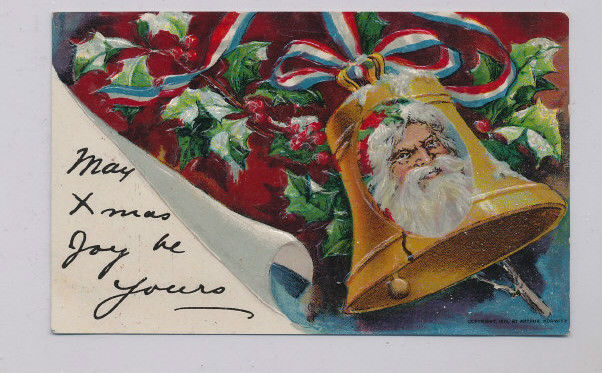 May
Xmas
Joy be
Yours
COPYRIGHT, 
BY ARTHUR